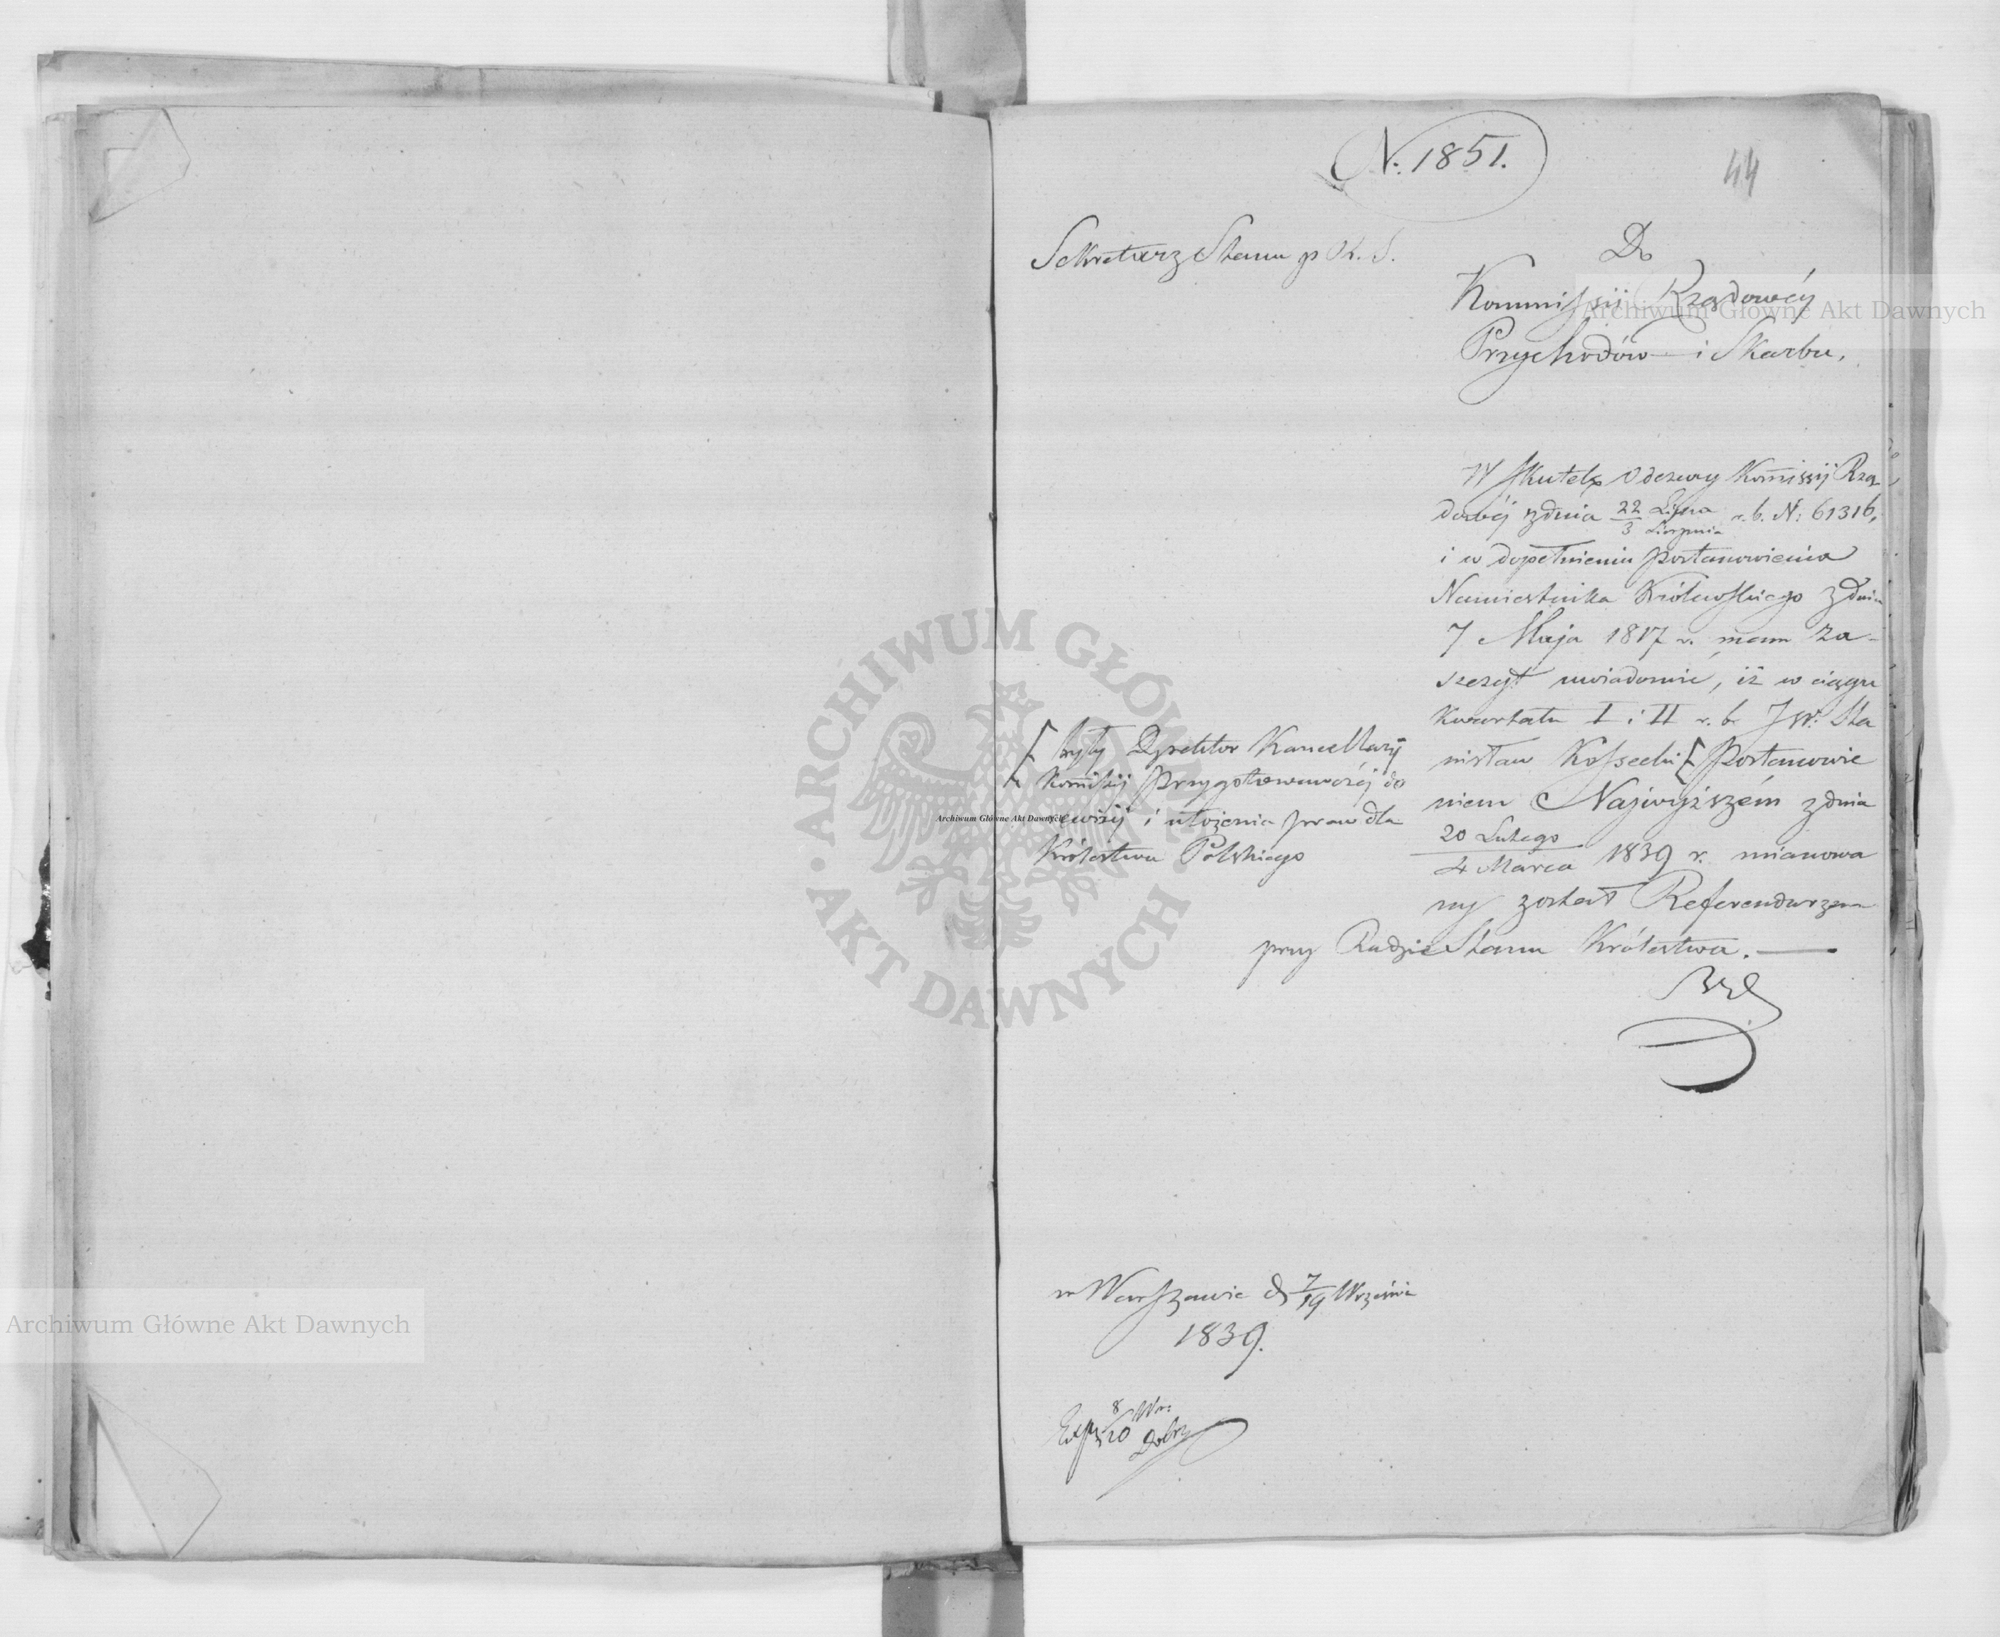 N. 1851.
44
Sekretarz Stanu p K. S.
Do
Kommissji Rządowéy
Przychodów i Skarbu.
W skutek Odezwy Kommissji Rzą
dowéj z dnia 22 Lipca / 3 Sierpnia r. b. N: 61316,
i w dopełnieniu Postanowienia
Namiestnika Królewskiego z dnia
7 Maja 1817 r. mam za-
szczyt uwiadomić, iż w ciągu
kwartału I i II r. b. JW. Sta
nisław Kossecki [ Postanowie
niem Najwyższém z dnia
20 Lutego / 4 Marca 1839 r. mianowa
ny został Referendarzem
przy Radzie Stanu Królestwa.
[ były Dyrektor Kancellaryi
Kommissji Przygotowawczéj do
rewizji i ułożenia praw dla
Królestwa Polskiego
w Warszawie d 7/19 Września
1839.
Exp 8/20 Wr:
Archiwum Główne Akt Dawnych
Archiwum Główne Akt Dawnych
Archiwum Główne Akt Dawnych
ARCHIWUM GŁÓWNE · AKT DAWNYCH ·